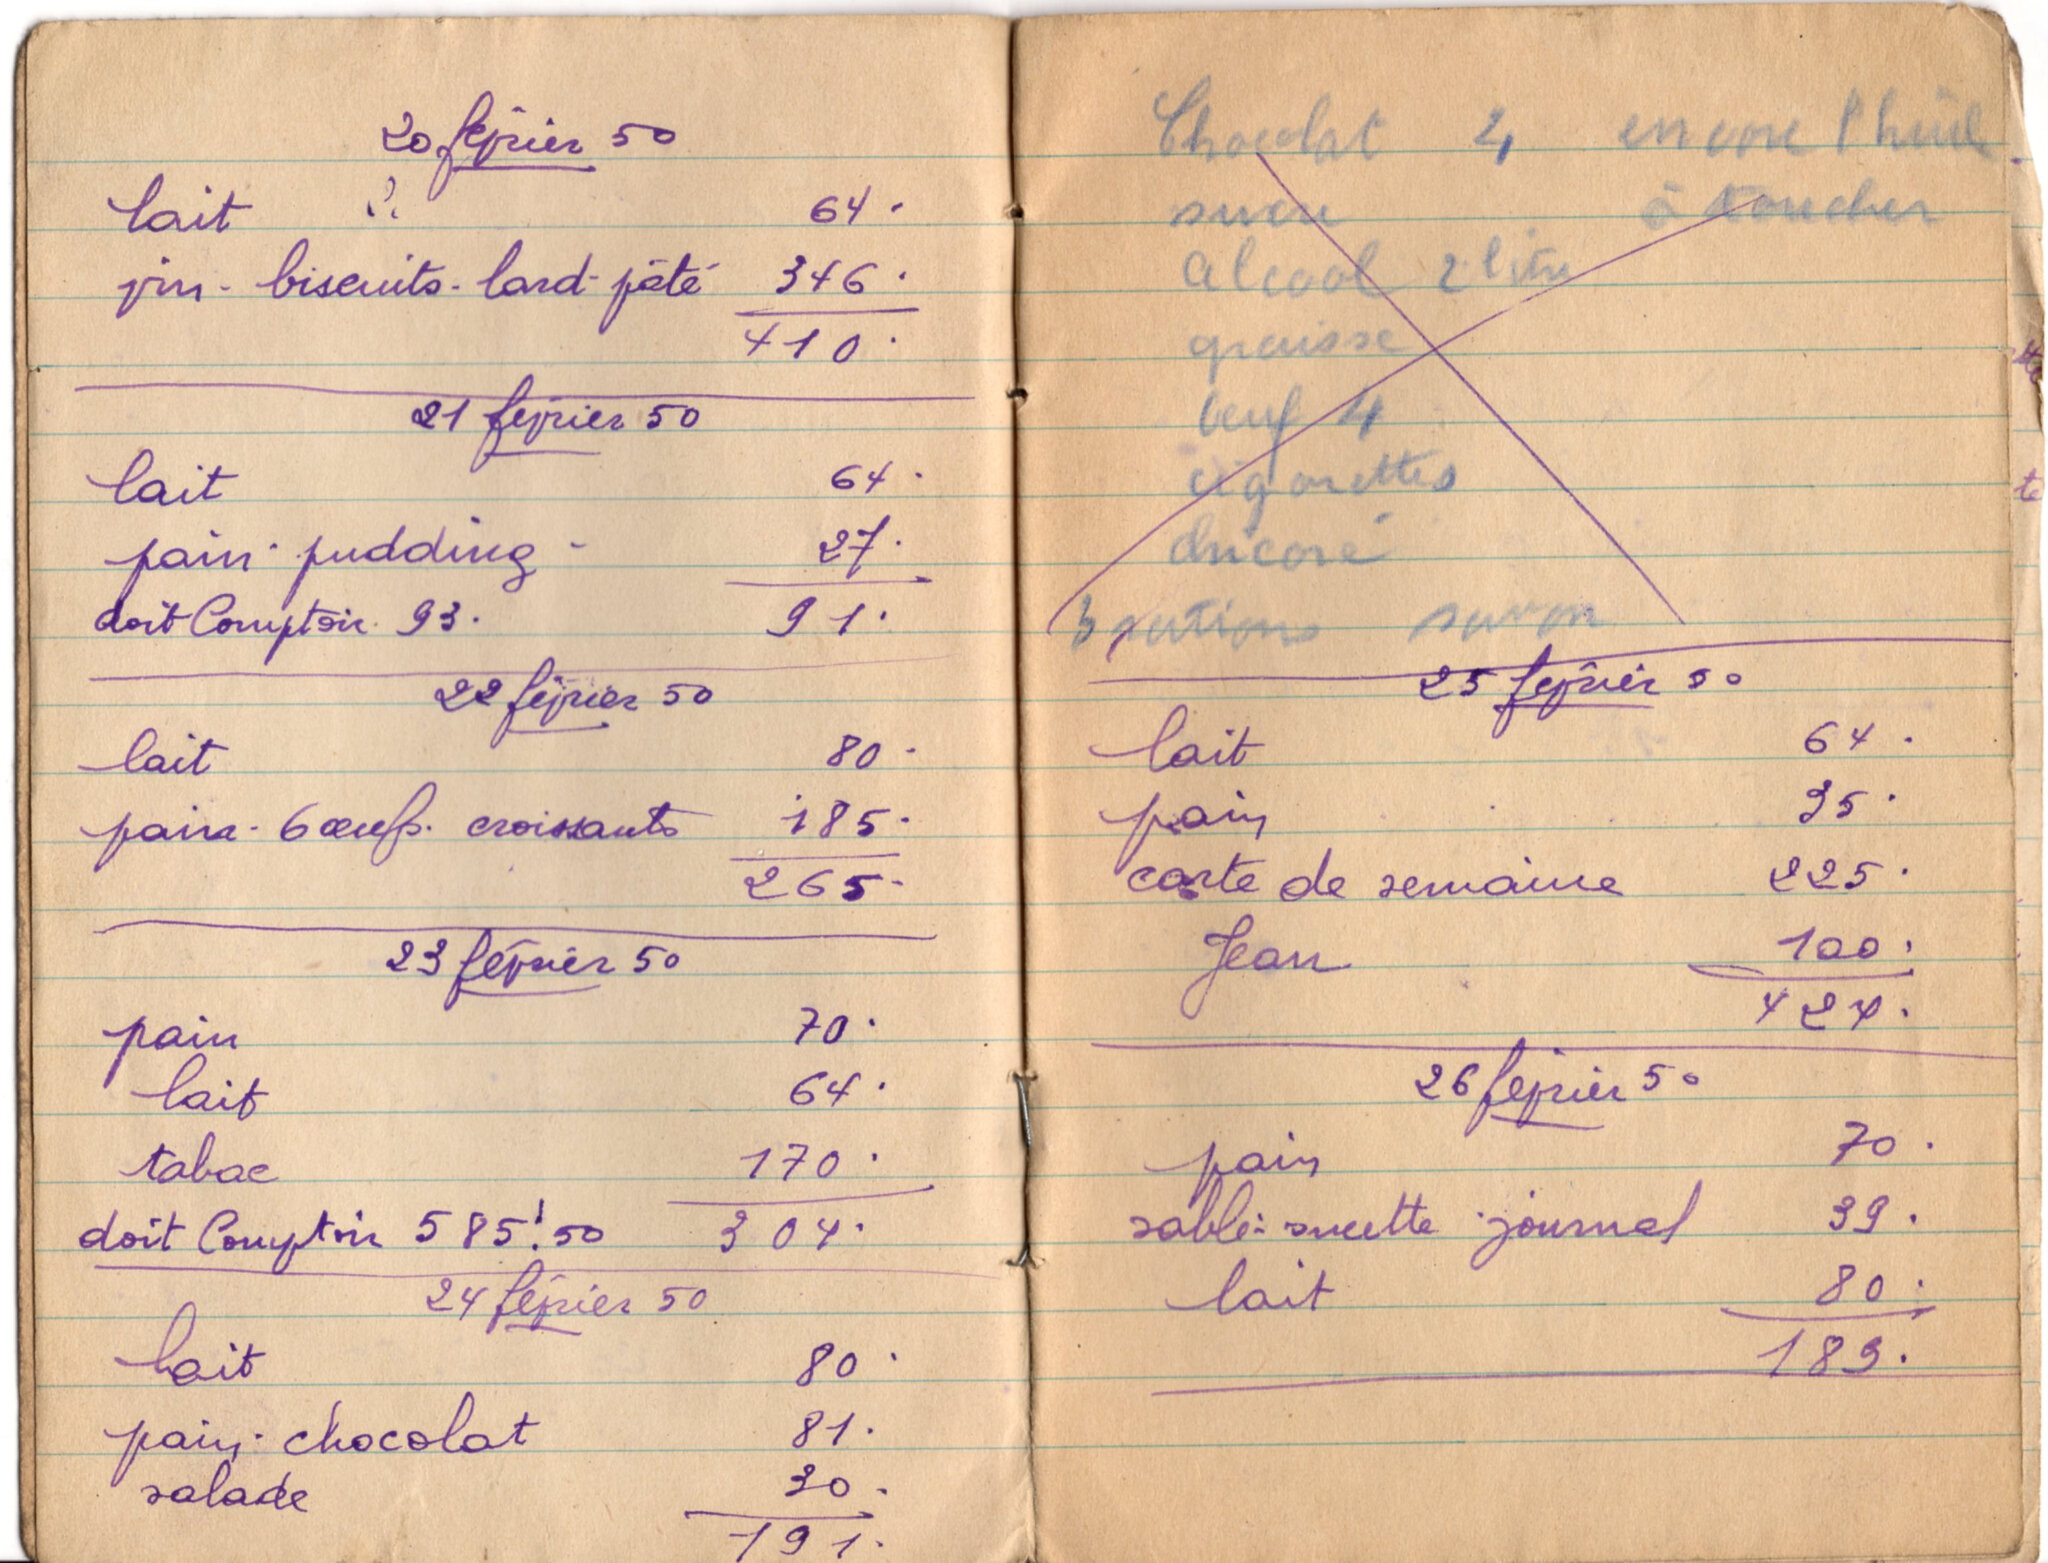 20 février 50
lait 64.
vin - biscuits - lard - pâté 346.
410.
21 février 50
lait 64.
pain - pudding - 27.
doit Comptoir 93. 91.
22 février 50
lait 80.
pain - 6 œufs. croissants 185.
265.
23 février 50
pain 70.
lait 64.
tabac 170.
doit Comptoir 585!50 304.
24 février 50
lait 80.
pain - chocolat 81.
salade 30.
191.
Chocolat 4 encore l'huile
sucre à toucher
alcool 2 litre
graisse
oeuf 4
cigarettes
chicoré
3 rations savon
25 février 50
lait 64.
pain 35.
carte de semaine 225.
Jean 100.
424.
26 février 50
pain 70.
sablé - sucette - journal 39.
lait 80.
189.